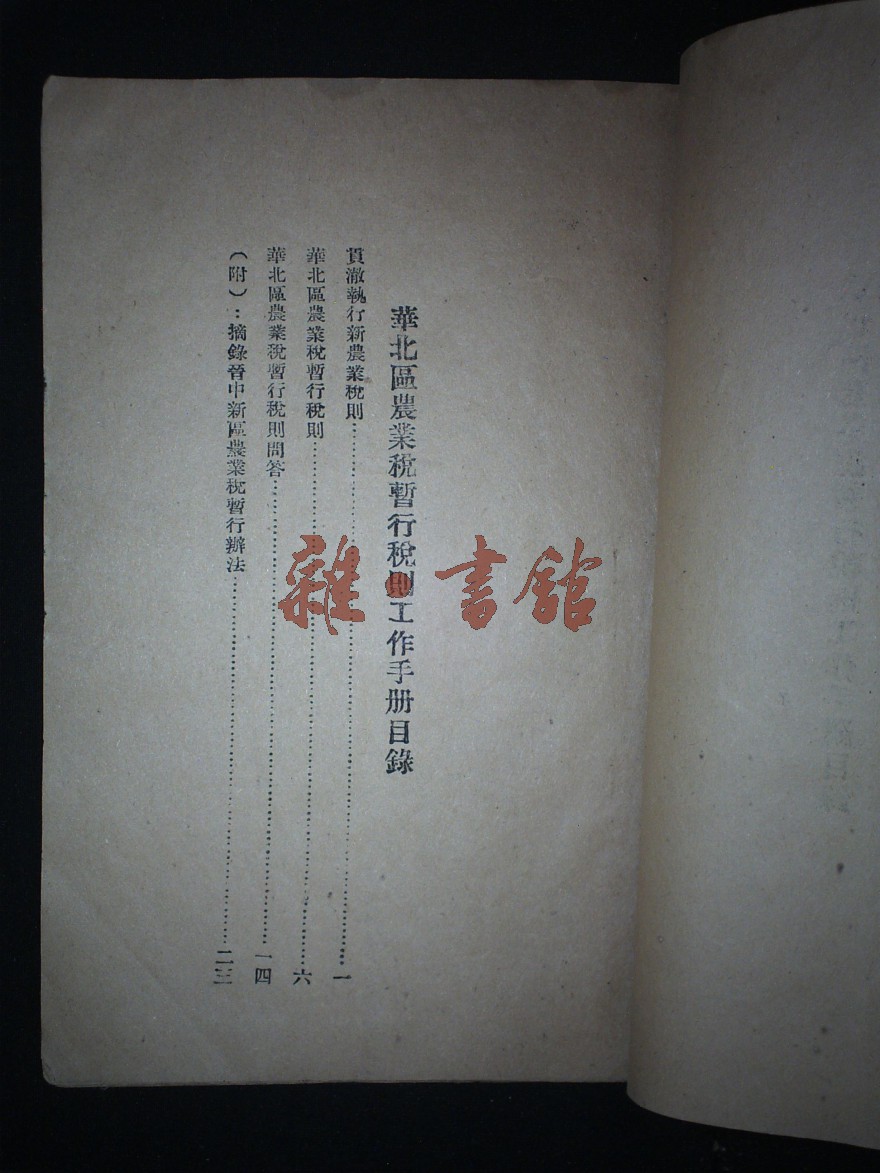 華北區農業稅暫行稅則工作手册目錄
貫澈執行新農業稅則……………………一
華北區農業稅暫行稅則……………………六
華北區農業稅暫行稅則問答……………………一四
(附)：摘錄晉中新區農業稅暫行辦法……………………二三
雜書館